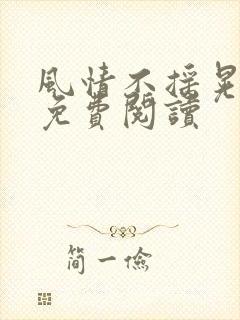 風情不搖晃
免費閱讀
簡一儉